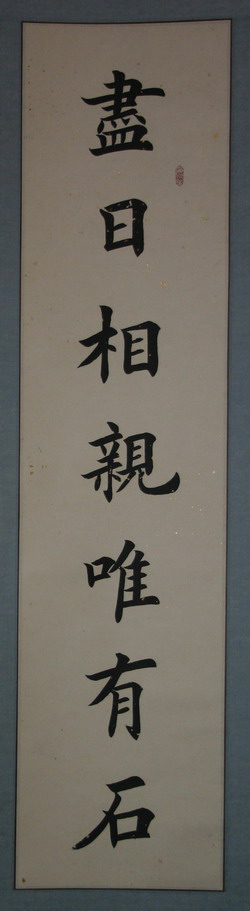 盡日相親唯有石